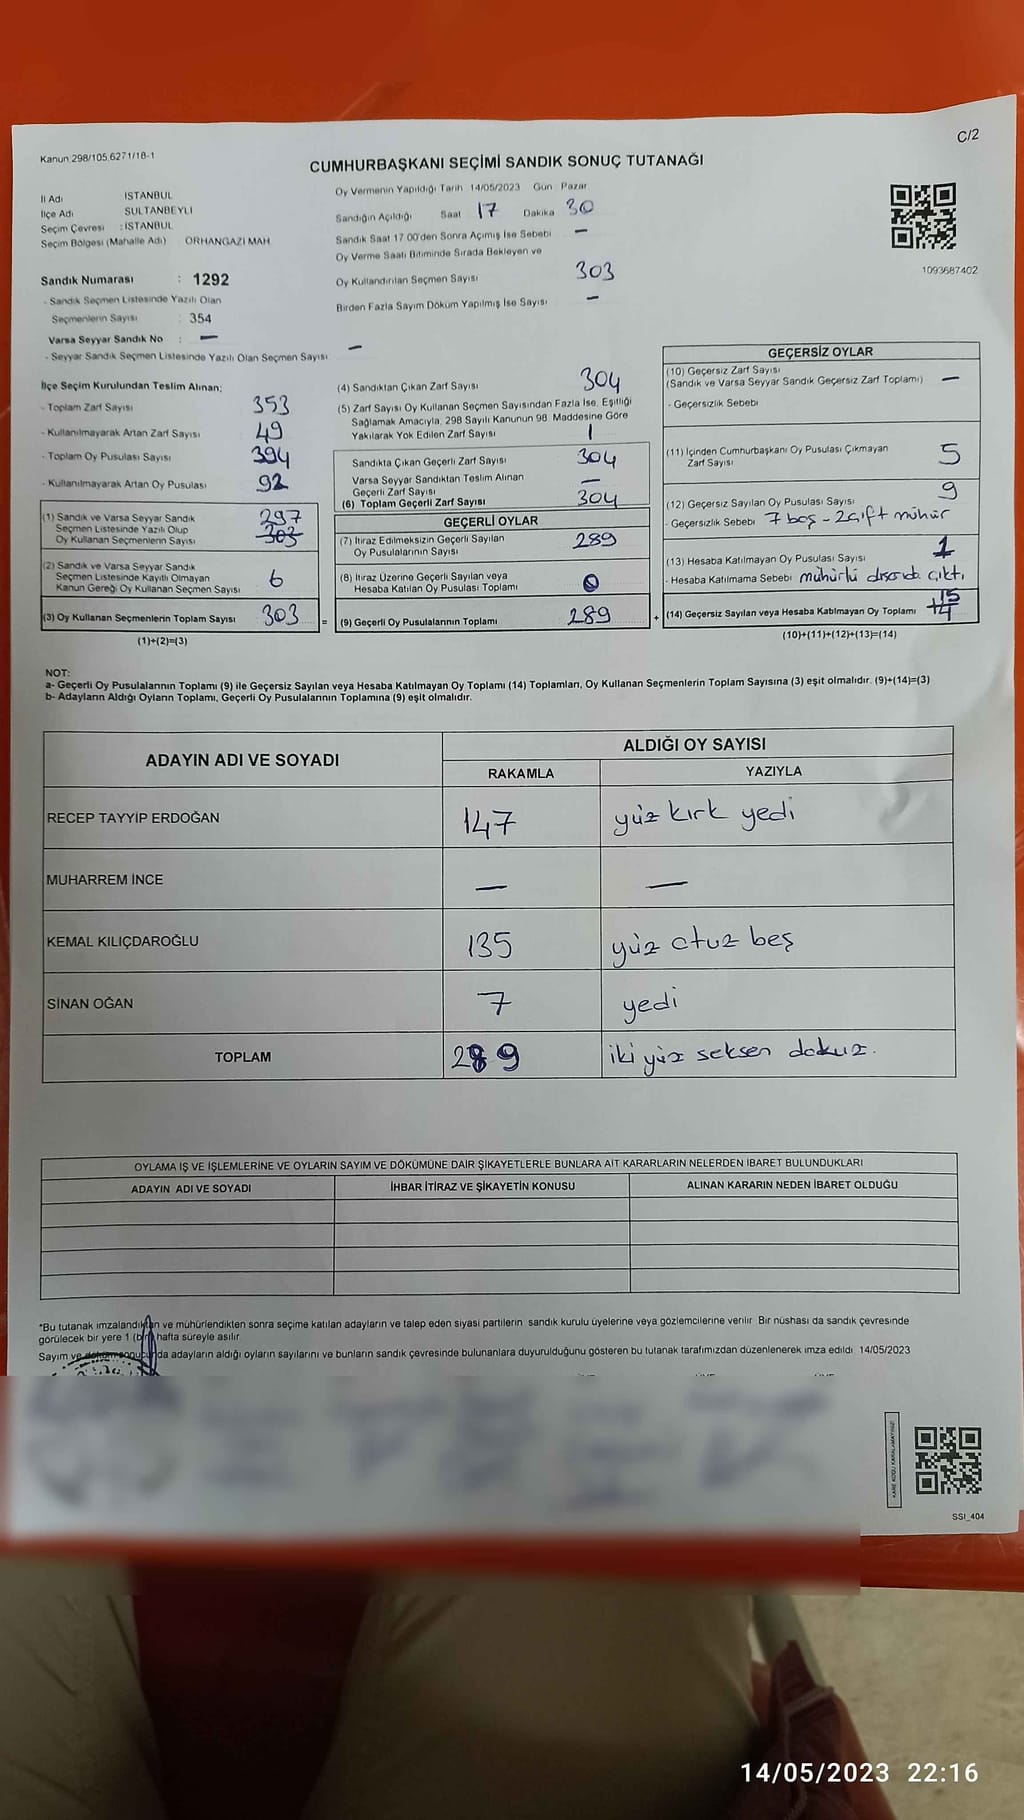 C/2
Kanun 298/105,6271/18-1
CUMHURBAŞKANI SEÇİMİ SANDIK SONUÇ TUTANAĞI
İl Adı İSTANBUL
İlçe Adı SULTANBEYLİ
Seçim Çevresi : İSTANBUL
Seçim Bölgesi (Mahalle Adı) ORHANGAZİ MAH.
Sandık Numarası : 1292
- Sandık Seçmen Listesinde Yazılı Olan
Seçmenlerin Sayısı : 354
Varsa Seyyar Sandık No : —
- Seyyar Sandık Seçmen Listesinde Yazılı Olan Seçmen Sayısı —
Oy Vermenin Yapıldığı Tarih 14/05/2023 Gün Pazar
Sandığın Açıldığı Saat 17 Dakika 30
Sandık Saat 17.00'den Sonra Açımış İse Sebebi —
Oy Verme Saati Bitiminde Sırada Bekleyen ve
Oy Kullandırılan Seçmen Sayısı 303
Birden Fazla Sayım Döküm Yapılmış İse Sayısı —
1093687402
İlçe Seçim Kurulundan Teslim Alınan;
- Toplam Zarf Sayısı 353
- Kullanılmayarak Artan Zarf Sayısı 49
- Toplam Oy Pusulası Sayısı 394
- Kullanılmayarak Artan Oy Pusulası 92
(1) Sandık ve Varsa Seyyar Sandık 297
Seçmen Listesinde Yazılı Olup
Oy Kullanan Seçmenlerin Sayısı 303
(2) Sandık ve Varsa Seyyar Sandık
Seçmen Listesinde Kayıtlı Olmayan
Kanun Gereği Oy Kullanan Seçmen Sayısı 6
(3) Oy Kullanan Seçmenlerin Toplam Sayısı 303
(1)+(2)=(3)
(4) Sandıktan Çıkan Zarf Sayısı 304
(5) Zarf Sayısı Oy Kullanan Seçmen Sayısından Fazla İse, Eşitliği
Sağlamak Amacıyla, 298 Sayılı Kanunun 98. Maddesine Göre
Yakılarak Yok Edilen Zarf Sayısı 1
Sandıkta Çıkan Geçerli Zarf Sayısı 304
Varsa Seyyar Sandıktan Teslim Alınan
Geçerli Zarf Sayısı —
(6) Toplam Geçerli Zarf Sayısı 304
GEÇERLİ OYLAR
(7) İtiraz Edilmeksizin Geçerli Sayılan
Oy Pusulalarının Sayısı 289
(8) İtiraz Üzerine Geçerli Sayılan veya
Hesaba Katılan Oy Pusulası Toplamı 0
= (9) Geçerli Oy Pusulalarının Toplamı 289
GEÇERSİZ OYLAR
(10) Geçersiz Zarf Sayısı
(Sandık ve Varsa Seyyar Sandık Geçersiz Zarf Toplamı) —
- Geçersizlik Sebebi
(11) İçinden Cumhurbaşkanı Oy Pusulası Çıkmayan
Zarf Sayısı 5
(12) Geçersiz Sayılan Oy Pusulası Sayısı 9
- Geçersizlik Sebebi 7 boş - 2 çift mühür
(13) Hesaba Katılmayan Oy Pusulası Sayısı 1
- Hesaba Katılmama Sebebi mühürlü dışarıda çıktı
+ (14) Geçersiz Sayılan veya Hesaba Katılmayan Oy Toplamı 15
(10)+(11)+(12)+(13)=(14)
NOT:
a- Geçerli Oy Pusulalarının Toplamı (9) ile Geçersiz Sayılan veya Hesaba Katılmayan Oy Toplamı (14) Toplamları, Oy Kullanan Seçmenlerin Toplam Sayısına (3) eşit olmalıdır. (9)+(14)=(3)
b- Adayların Aldığı Oyların Toplamı, Geçerli Oy Pusulalarının Toplamına (9) eşit olmalıdır.
ADAYIN ADI VE SOYADI
ALDIĞI OY SAYISI
RAKAMLA YAZIYLA
RECEP TAYYİP ERDOĞAN 147 yüz kırk yedi
MUHARREM İNCE — —
KEMAL KILIÇDAROĞLU 135 yüz otuz beş
SİNAN OĞAN 7 yedi
TOPLAM 289 iki yüz seksen dokuz.
OYLAMA İŞ VE İŞLEMLERİNE VE OYLARIN SAYIM VE DÖKÜMÜNE DAİR ŞİKAYETLERLE BUNLARA AİT KARARLARIN NELERDEN İBARET BULUNDUKLARI
ADAYIN ADI VE SOYADI İHBAR İTİRAZ VE ŞİKAYETİN KONUSU ALINAN KARARIN NEDEN İBARET OLDUĞU
*Bu tutanak imzalandıktan ve mühürlendikten sonra seçime katılan adayların ve talep eden siyasi partilerin sandık kurulu üyelerine veya gözlemcilerine verilir. Bir nüshası da sandık çevresinde
görülecek bir yere 1 (bir) hafta süreyle asılır.
Sayım ve döküm sonucunda adayların aldığı oyların sayılarını ve bunların sandık çevresinde bulunanlara duyurulduğunu gösteren bu tutanak tarafımızdan düzenlenerek imza edildi. 14/05/2023
KARE KODU KARALAMAYINIZ!
SSI_404
14/05/2023 22:16